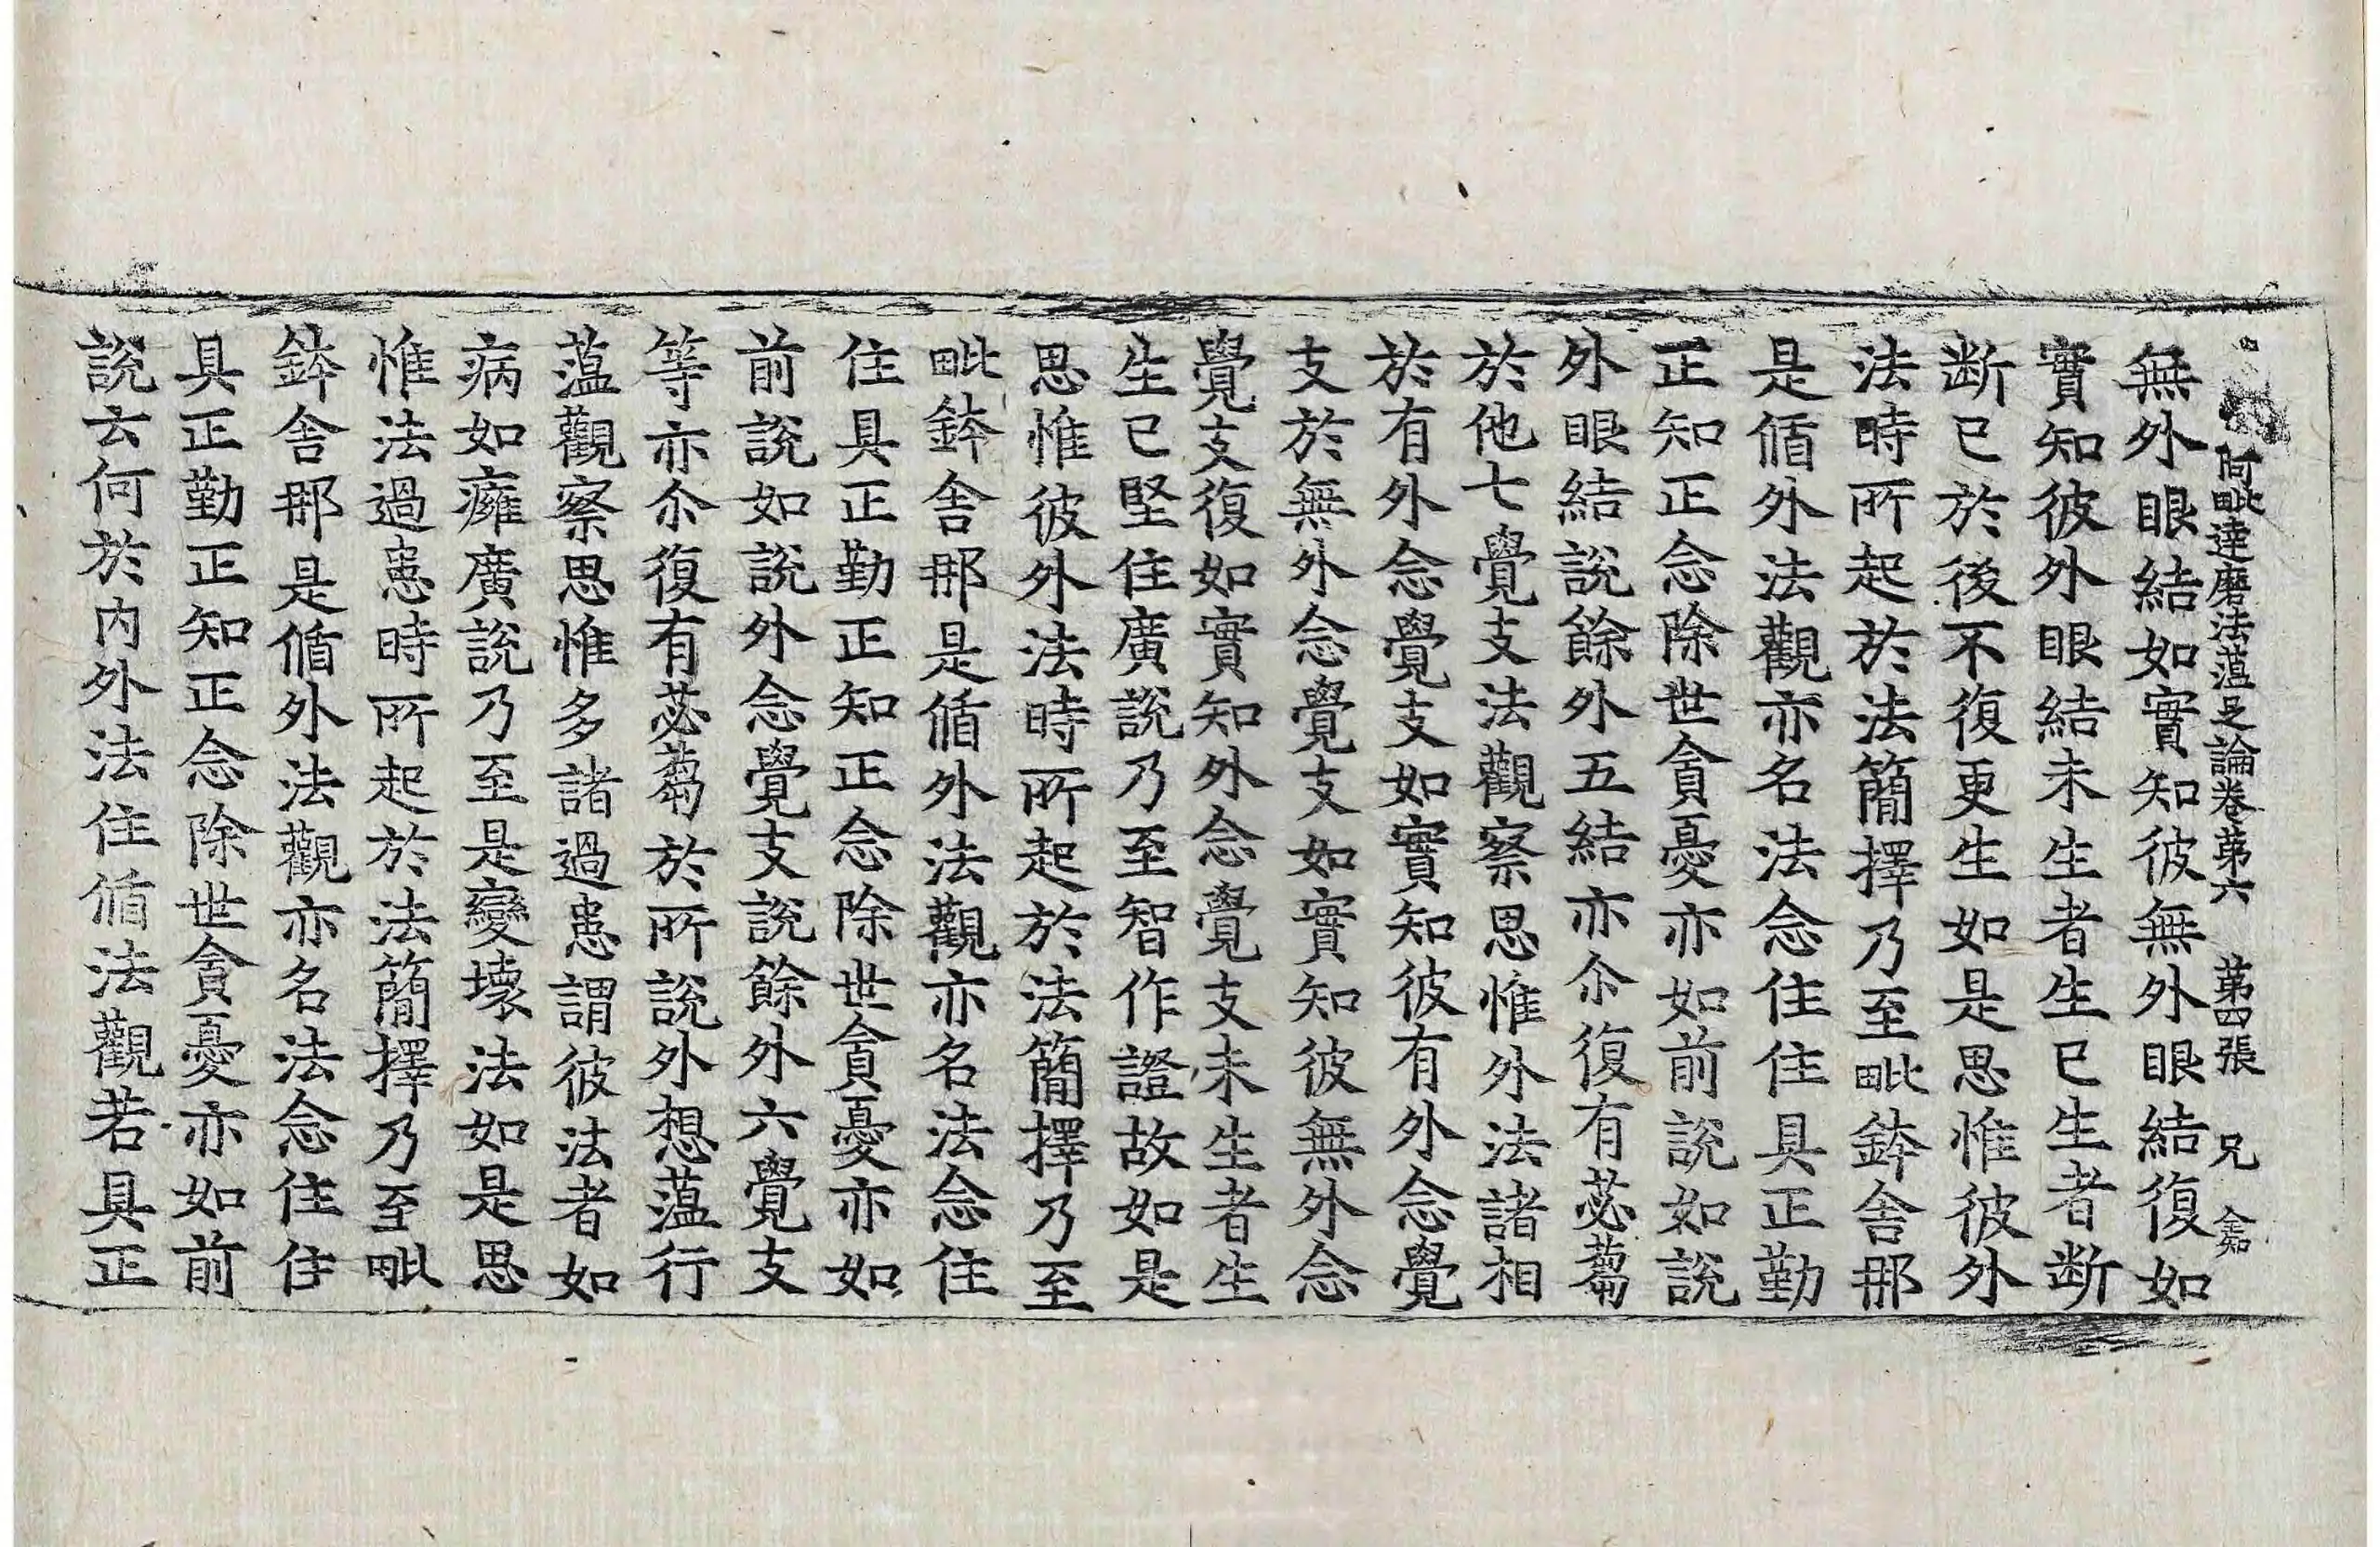 阿毗達磨法蘊足論卷第六 第四張 兄
無外眼結如實知彼無外眼結復如
實知彼外眼結未生者生已生者斷
斷已於後不復更生如是思惟彼外
法時所起於法簡擇乃至毗鉢舍那
是循外法觀亦名法念住住具正勤
正知正念除世貪憂亦如前說如說
外眼結說餘外五結亦尒復有苾蒭
於他七覺支法觀察思惟外法諸相
於有外念覺支如實知彼有外念覺
支於無外念覺支如實知彼無外念
覺支復如實知外念覺支未生者生
生已堅住廣說乃至智作證故如是
思惟彼外法時所起於法簡擇乃至
毗鉢舍那是循外法觀亦名法念住
住具正勤正知正念除世貪憂亦如
前說如說外念覺支說餘外六覺支
等亦尒復有苾蒭於所說外想蘊行
蘊觀察思惟多諸過患謂彼法者如
病如癰廣說乃至是變壞法如是思
惟法過患時所起於法簡擇乃至毗
鉢舍那是循外法觀亦名法念住住
具正勤正知正念除世貪憂亦如前
說云何於內外法住循法觀若具正